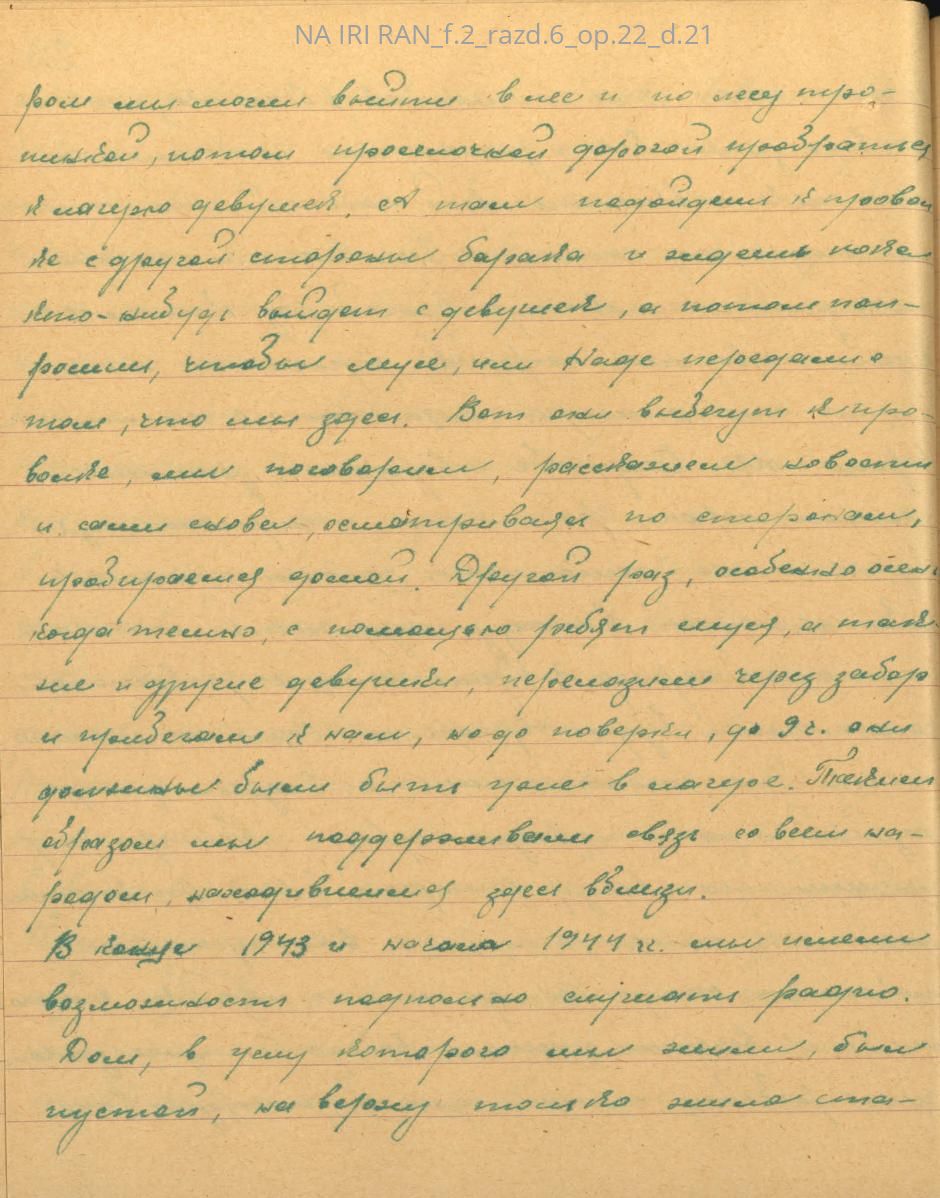 NA IRI RAN_f.2_razd.6_op.22_d.21
ром мы могли выйти в лес и по лесу тро-
пинкой, потом проселочной дорогой пробраться
к лагерю девушек. А там подойдешь к провол
ке с другой стороны барака и ждешь пока
кто-нибудь выйдет с девушек, а потом поп-
росишь, чтобы Мусе, или Наде передали о
том, что мы здесь. Вот они выбегут к про-
волке, мы поговорим, расскажем новости
и сами снова, осматриваясь по сторонам,
пробираемся домой. Другой раз, особенно осен
когда темно, с помощью ребят Муся, а так
же и другие девушки, перелазили через забор
и прибегали к нам, но до поверки, до 9 ч. они
должны были быть уже в лагере. Таким
образом мы поддерживали связь со всем на-
родом, находившимся здесь вблизи.
В конце 1943 и начала 1944 г. мы имели
возможность подпольно слушать радио.
Дом, в углу которого мы жили, был
пустой, на верху только жила ста-